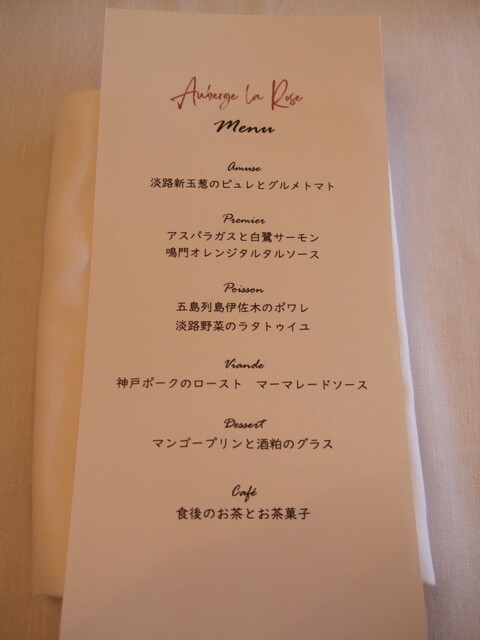 Auberge La Rose
Menu
Amuse
淡路新玉葱のピュレとグルメトマト
Premier
アスパラガスと白鷺サーモン
鳴門オレンジタルタルソース
Poisson
五島列島伊佐木のポワレ
淡路野菜のラタトゥイユ
Viande
神戸ポークのロースト　マーマレードソース
Dessert
マンゴープリンと酒粕のグラス
Café
食後のお茶とお茶菓子